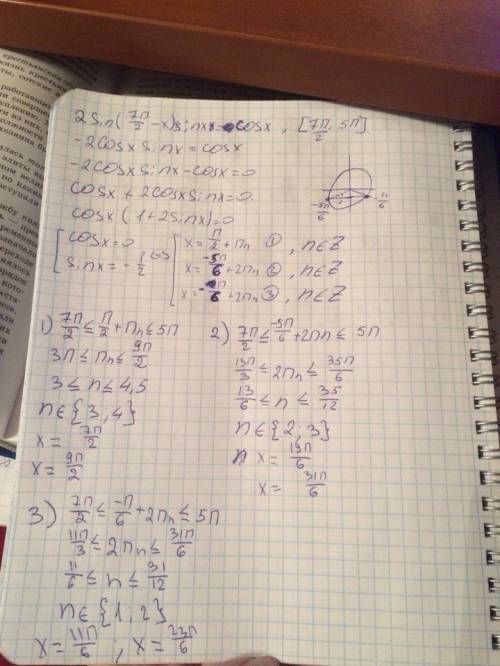 2Sin(7π/2 -x)sinx = cosx , [7π/2, 5π]
-2cosx sinx = cosx
-2cosx sinx - cosx = 0
cosx + 2cosx sinx = 0.
cosx (1+2sinx) = 0
[ cosx = 0
sinx = -1/2 <=>
[ x = π/2 + πn ① , n∈Z
x = -5π/6 + 2πn ② , n∈Z
x = -π/6 + 2πn ③ , n∈Z
-5π/6
-π/6
1) 7π/2 ≤ π/2 + πn ≤ 5π
3π ≤ πn ≤ 9π/2
3 ≤ n ≤ 4,5
n∈{3;4}
x = 7π/2
x = 9π/2
2) 7π/2 ≤ -5π/6 + 2πn ≤ 5π
13π/3 ≤ 2πn ≤ 35π/6
13/6 ≤ n ≤ 35/12
n∈{2;3}
x = 19π/6
x = 31π/6
3) 7π/2 ≤ -π/6 + 2πn ≤ 5π
11π/3 ≤ 2πn ≤ 31π/6
11/6 ≤ n ≤ 31/12
n∈{1;2}
x = 11π/6 ; x = 23π/6